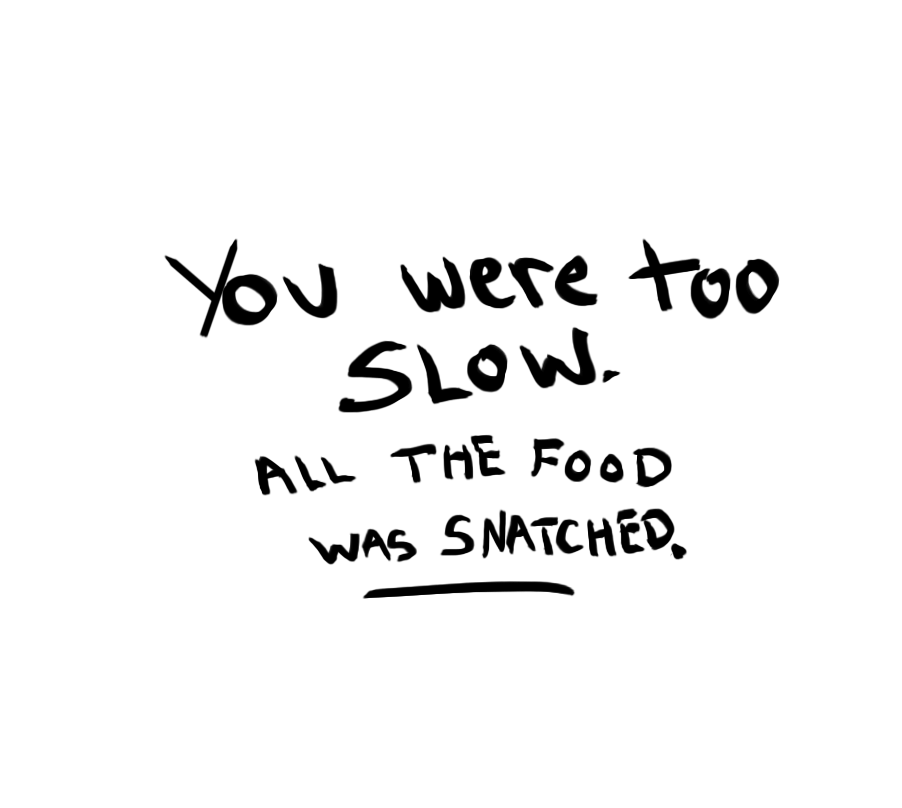 You were too
SLOW.
ALL THE FOOD
WAS SNATCHED.